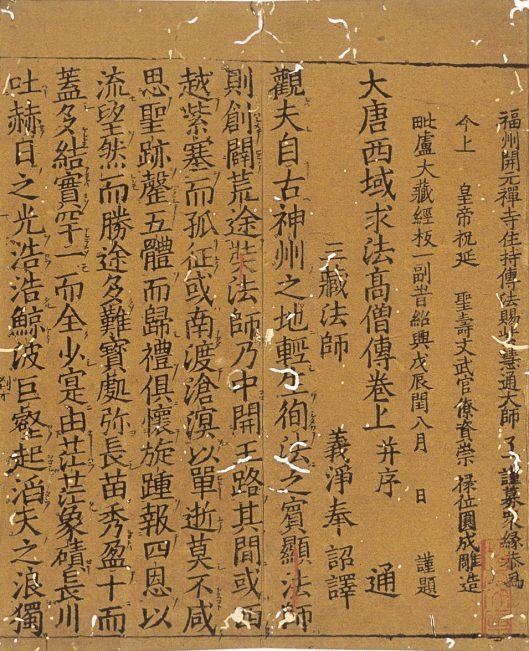 福州開元禪寺住持傳法賜紫慧通大師 了 謹募衆緣恭為
今上 皇帝祝延 聖壽文武官僚資崇 祿位圓成雕造
毗盧大藏經板一副旹紹興戊辰閏八月 日 謹題
大唐西域求法高僧傳卷上 并序 通
三藏法師 義淨奉 詔譯
觀夫自古神州之地輕生徇法之賓顯法師
則創闢荒途奘法師乃中開王路其間或西
越紫塞而孤征或南渡滄溟以單逝莫不咸
思聖跡罄五體而歸禮俱懷旋踵報四恩以
流望然而勝途多難寶處弥長苗秀盈十而
蓋多結實罕一而全少寔由茫茫象磧長川
吐赫日之光浩浩鯨波巨壑起滔天之浪獨